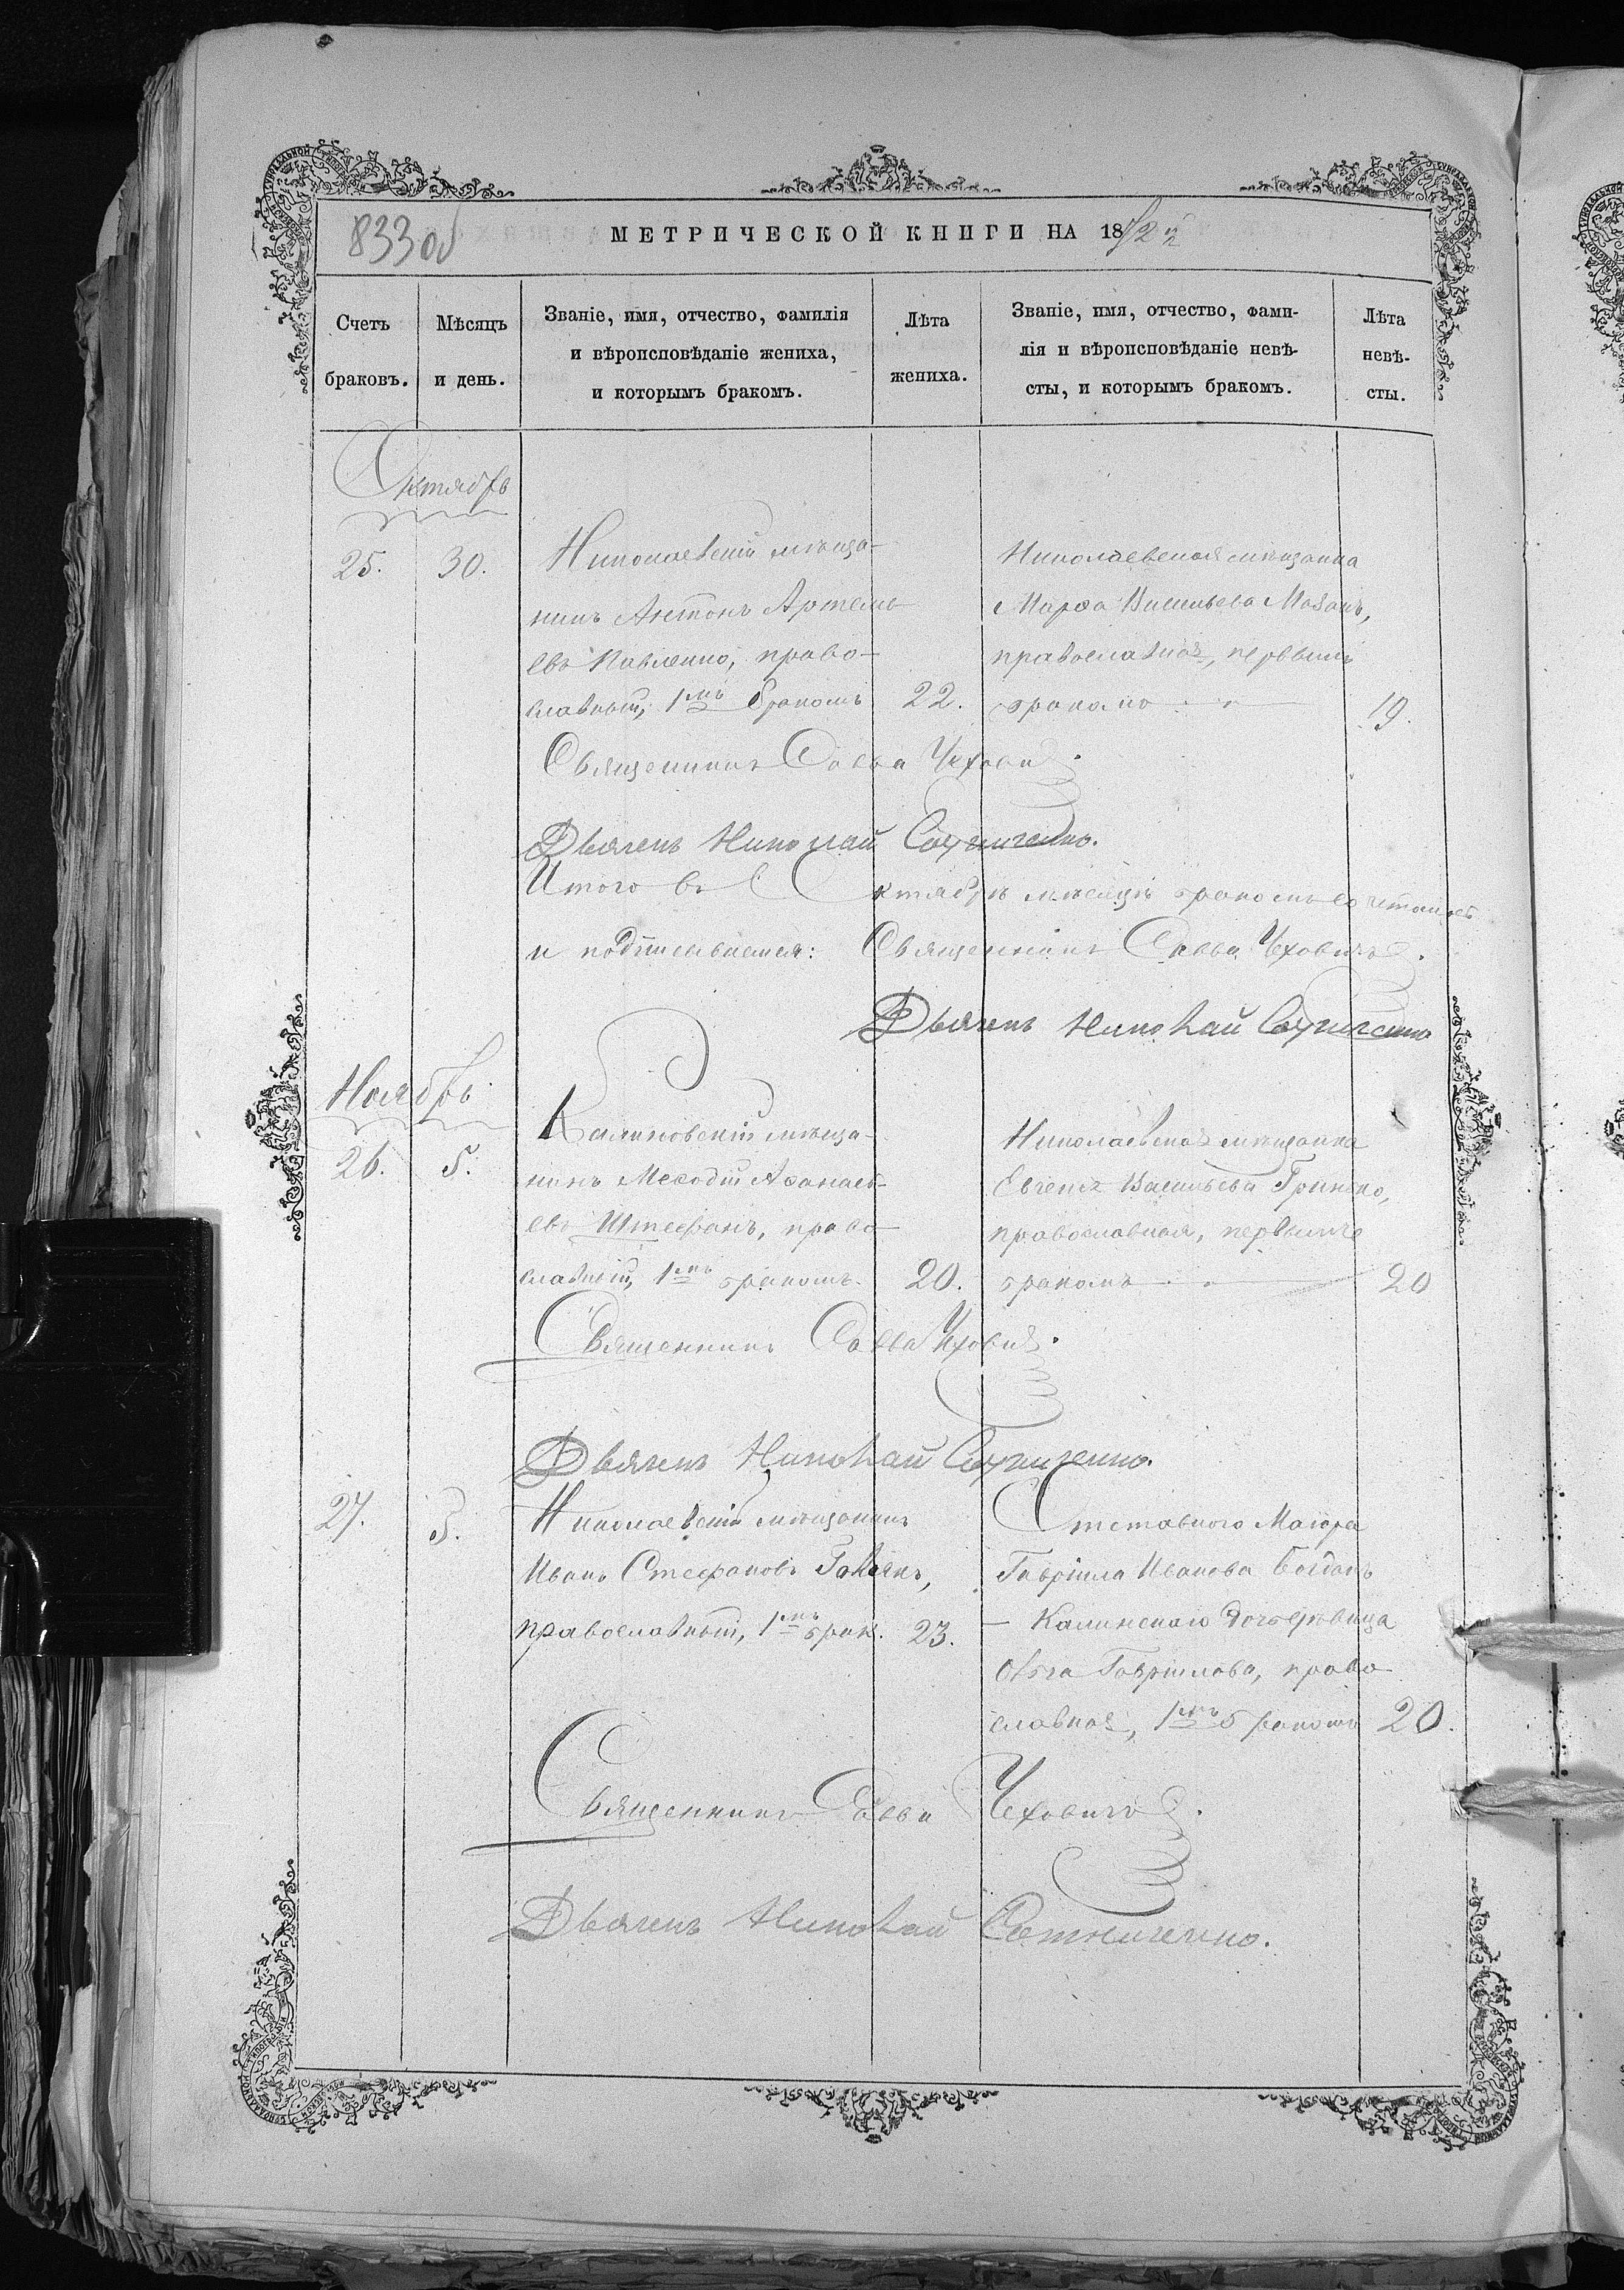 833об
МЕТРИЧЕСКОЙ КНИГИ НА 18
Счетъ
браковъ.
Мѣсяцъ
и день.
Званіе, имя, отчество, фамилія
и вѣроисповѣданіе жениха,
и которымъ бракомъ.
Лѣта
жениха.
Званіе, имя, отчество, фами-
лія и вѣроисповѣданіе невѣ-
сты, и которымъ бракомъ.
Лѣта
невѣ-
сты.
Октябрь
25.
30.
Николаевскій мѣща-
нинъ Антонъ Артемь-
евъ Павленко, право-
славный, 1мъ бракомъ
22.
Николаевская мѣщанка
Марѳа Васильева Мазанъ,
православная, первымъ
бракомъ
19.
Священникъ Савва Чехович
Дьячекъ Николай Сотниченко.
Итого въ Октябрѣ мѣсяцѣ бракомъ
и подписываемся: Священникъ Савва Чеховичъ.
Дьячекъ Николай Сотниченко
Ноябрь
26.
5.
мѣща-
нинъ Меѳодій Аѳанась-
евъ Штефанъ, право-
славный, 1мъ бракомъ.
20.
Николаевская мѣщанка
Евгенія Васильева Гринько,
православная, первымъ
бракомъ
20
Священникъ Савва Чехович.
Дьячекъ Николай Сотниченко.
27.
5.
Николаевскій мѣщанинъ
Иванъ Стефановъ
православный, 1мъ брак.
23.
Отставного Маіора
Гавріила Иванова Богданъ
- Калинскаго дочь дѣвица
Ольга Гавріилова, право-
славная, 1мъ бракомъ
20.
Священникъ Савва Чеховичъ.
Дьячекъ Николай Сотниченко.